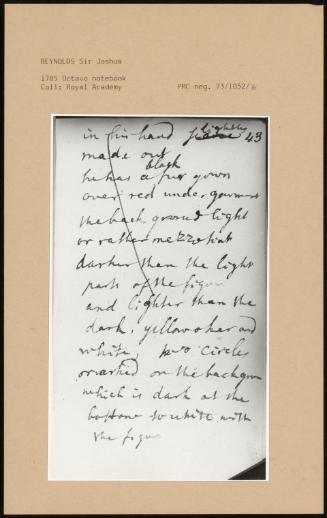 REYNOLDS Sir Joshua
1785 Octavo notebook
Coll: Royal Academy
PRC neg. 73/1052/6
43
lightly
in his hand
made out
black
he has a fur gown
over red under garment
the back ground light
or rather mezzotint
darker than the light
part of the figure
and lighter than the
dark. yellow oker and
white, two circles
marked on the backgrou
which is dark at the
bottome to unite with
the figur